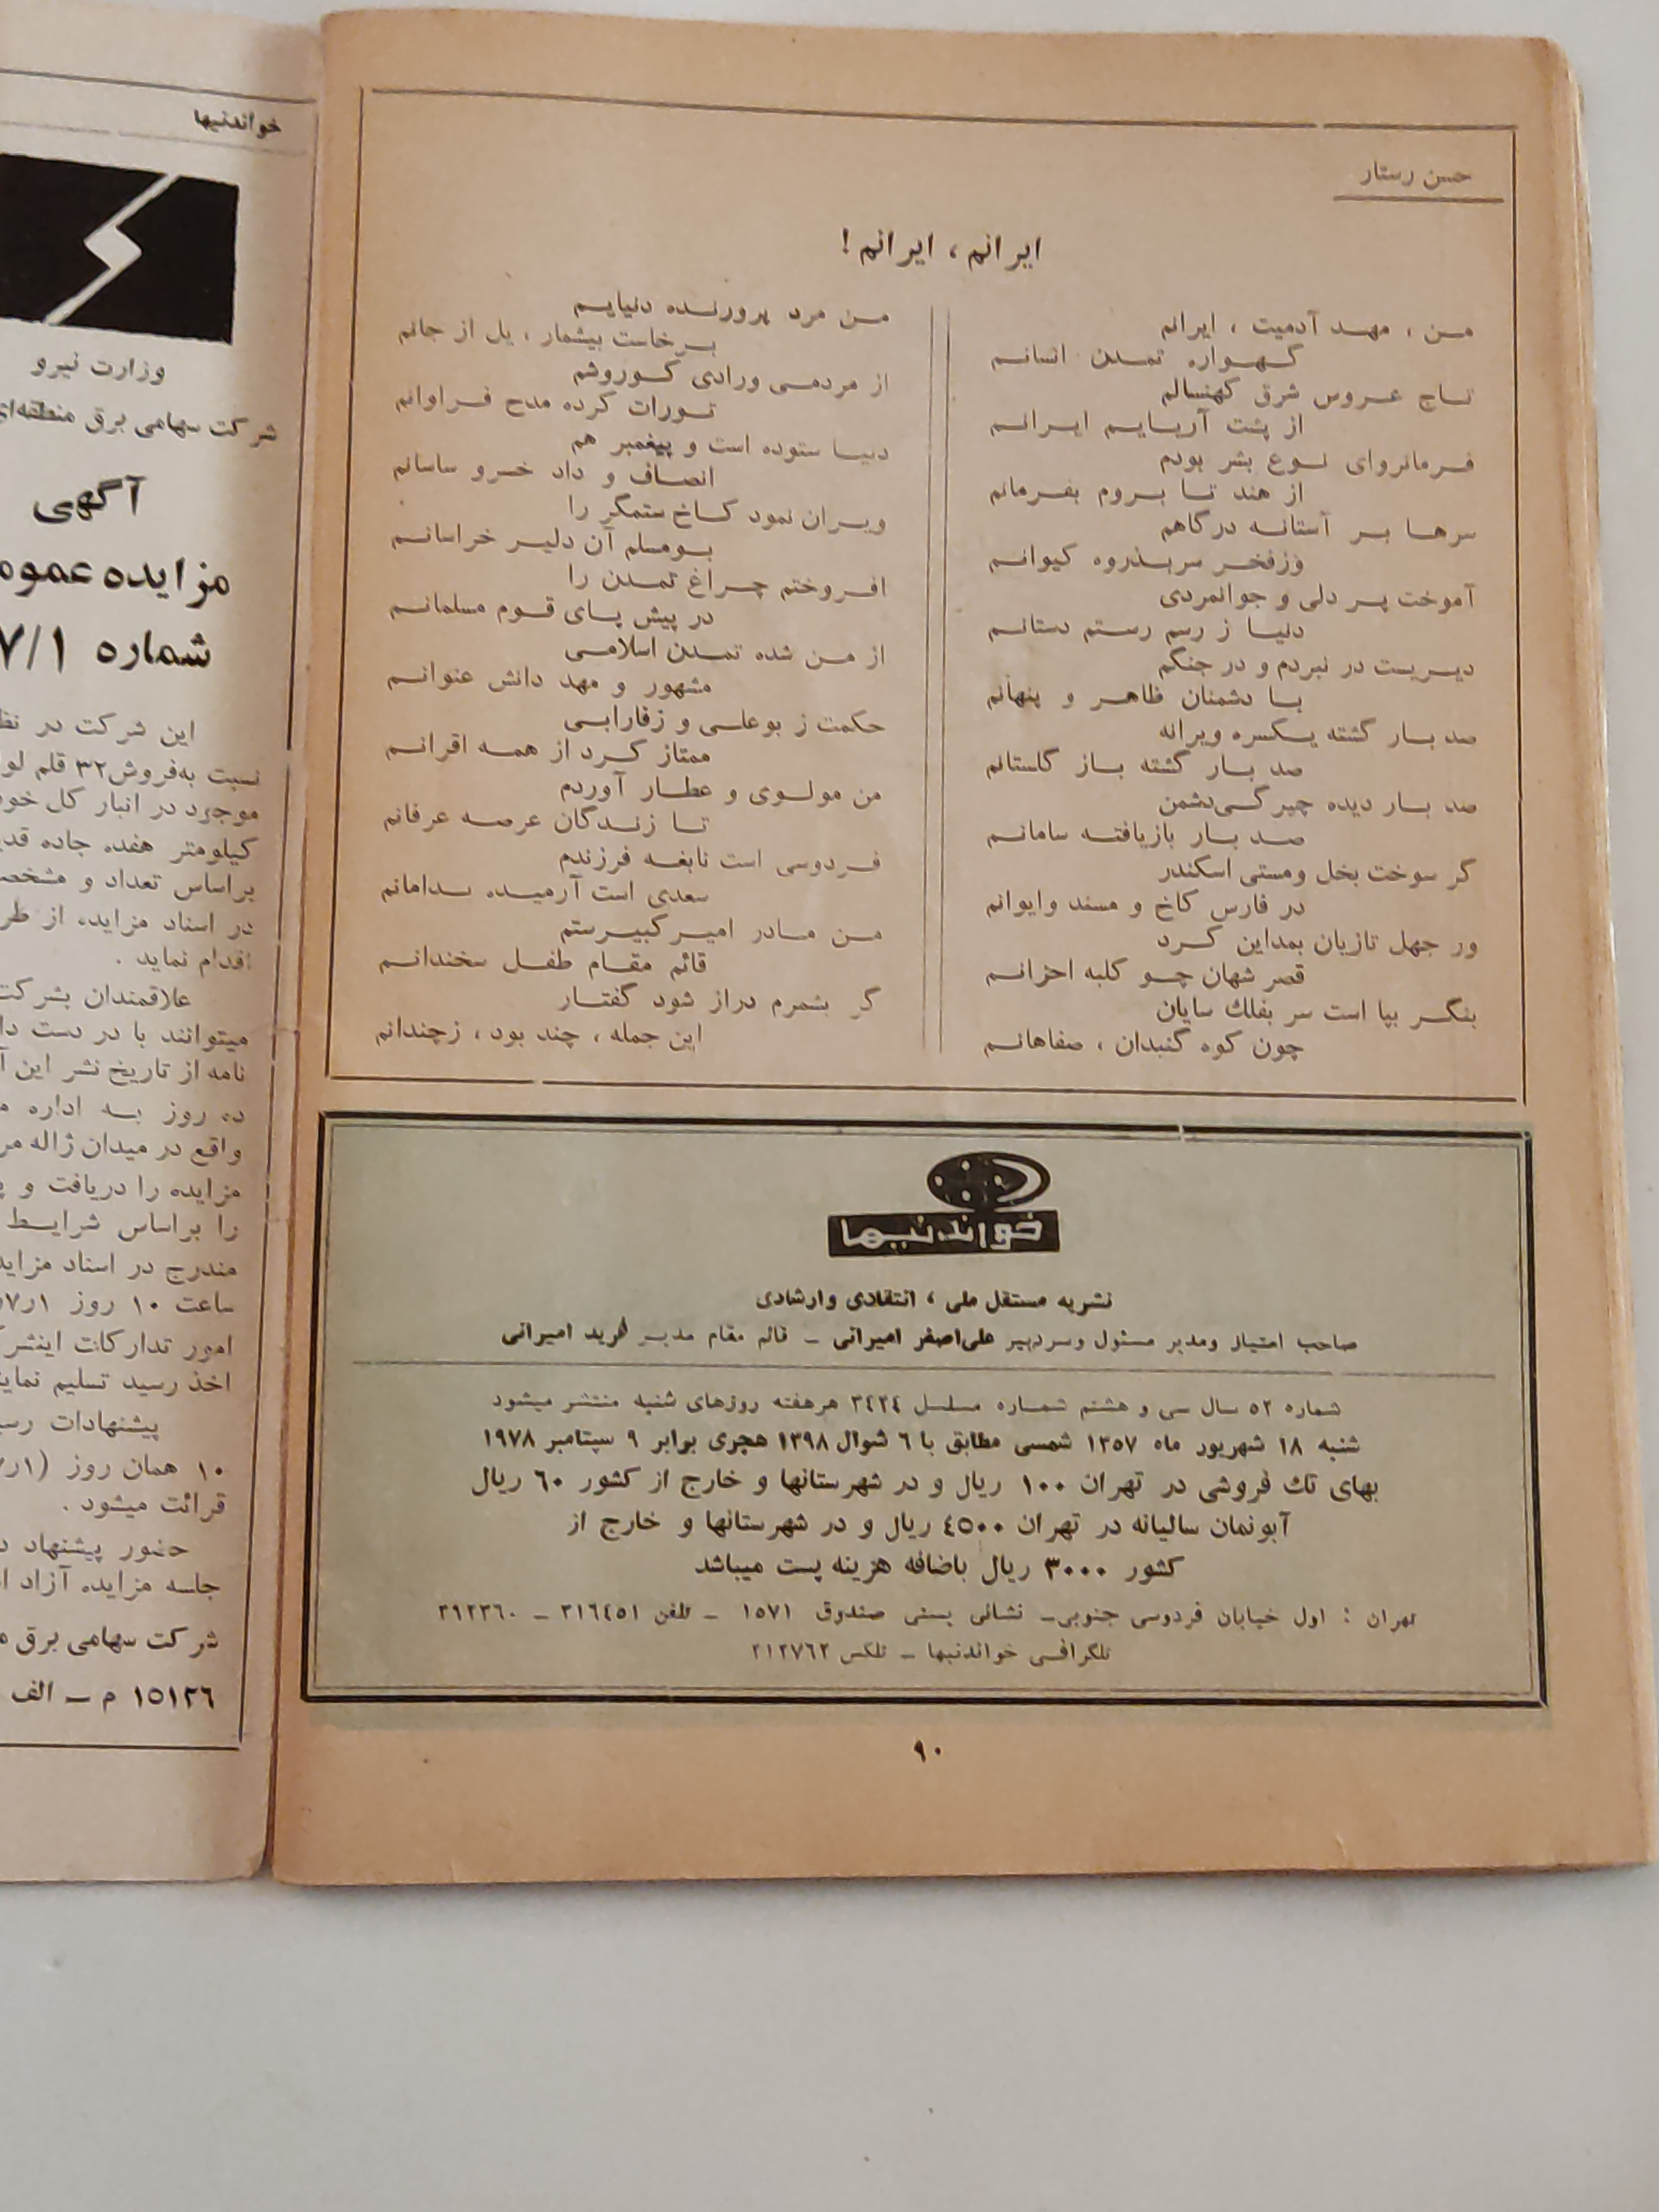 حسن رستار
ایرانم ، ایرانم !
من ، مهد آدمیت ، ایرانم
گهواره تمدن انسانم
تاج عروس شرق کهنسالم
از پشت آریایم ایرانم
فرمانروای نوع بشر بودم
از هند تا بروم بفرمانم
سرها بر آستانه درگاهم
وزفخر سربذروه کیوانم
آموخت پر دلی و جوانمردی
دنیا ز رسم رستم دستانم
دیریست در نبردم و در جنگم
با دشمنان ظاهر و پنهانم
صد بار گشته یکسره ویرانه
صد بار گشته باز گلستانم
صد بار دیده چیرگی‌دشمن
صد بار بازیافته سامانم
گر سوخت بخل ومستی اسکندر
در فارس کاخ و مسند وایوانم
ور جهل تازیان بمداین کرد
قصر شهان چو کلبه احزانم
بنگر بپا است سر بفلک سایان
چون کوه گنبدان ، صفاهانم
من مرد پرورنده دنیایم
برخاست بیشمار ، یل از جانم
از مردمی ورادی کوروشم
تورات کرده مدح فراوانم
دنیا ستوده است و پیغمبر هم
انصاف و داد خسرو ساسانم
ویران نمود کاخ ستمگر را
بومسلم آن دلیر خراسانم
افروختم چراغ تمدن را
در پیش پای قوم مسلمانم
از من شده تمدن اسلامی
مشهور و مهد دانش عنوانم
حکمت ز بوعلی و زفارابی
ممتاز کرد از همه اقرانم
من مولوی و عطار آوردم
تا زندگان عرصه عرفانم
فردوسی است نابغه فرزندم
سعدی است آرمیده بدامانم
من مادر امیرکبیرستم
قائم مقام طفل سخندانم
گر بشمرم دراز شود گفتار
این جمله ، چند بود ، زچندانم
خواندنیها
نشریه مستقل ملی ، انتقادی وارشادی
صاحب امتیاز ومدیر مسئول وسردبیر علی‌اصغر امیرانی ـ قائم مقام مدیر فرید امیرانی
شماره ٥٢ سال سی و هشتم شماره مسلسل ٣٤٢٤ هرهفته روزهای شنبه منتشر میشود
شنبه ١٨ شهریور ماه ١٣٥٧ شمسی مطابق با ٦ شوال ١٣٩٨ هجری برابر ٩ سپتامبر ١٩٧٨
بهای تك فروشی در تهران ١٠٠ ریال و در شهرستانها و خارج از کشور ٦٠ ریال
آبونمان سالیانه در تهران ٤٥٠٠ ریال و در شهرستانها و خارج از
کشور ٣٠٠٠ ریال باضافه هزینه پست میباشد
تهران : اول خیابان فردوسی جنوبی ـ نشانی پستی صندوق ١٥٧١ ـ تلفن ٣١٦٤٥١ ـ ٣٩٢٣٦٠
تلگرافی خواندنیها ـ تلکس ٢١٢٧٦٢
٩٠
خواندنیها
وزارت نیرو
شرکت سهامی برق منطقه‌ای
آگهی
مزایده عموم
شماره ٧/١
این شرکت در نظ
نسبت به‌فروش ٣٢ قلم لوا
موجود در انبار کل خو
کیلومتر هفده جاده قدی
براساس تعداد و مشخص
در اسناد مزایده از طر
اقدام نماید .
علاقمندان بشرکت
میتوانند با در دست دا
نامه از تاریخ نشر این آ
ده روز به اداره
واقع در میدان ژاله
مزایده را دریافت و
را براساس شرایط
مندرج در اسناد مزاید
ساعت ١٠ روز
امور تدارکات اینشر
اخذ رسید تسلیم نمای
پیشنهادات رس
١٠ همان روز
قرائت میشود .
حضور پیشنهاد د
جلسه مزایده آزاد ا
شرکت سهامی برق م
١٥١٢٦ م ـ الف